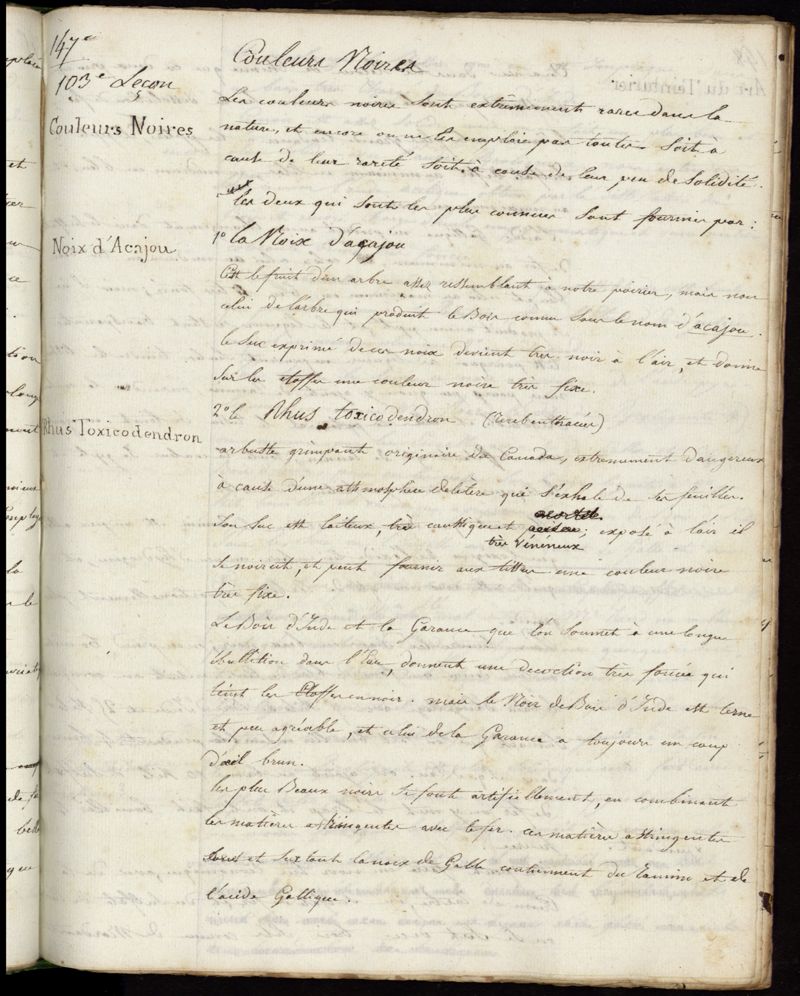 147e
103e Leçon
Couleurs Noires
Couleurs Noires
Les couleurs noires sont extrêmement rares dans la
nature, et encore on ne les emploie pas toutes soit à
cause de leur rareté soit à cause de leur peu de solidité.
les deux qui sont les plus connues sont fournies par:
Noix d'Acajou
1o la Noix d'acajou
C'est le fruit d'un arbre assez ressemblant à notre poirier, mais non
celui de l'arbre qui produit le Bois connu sous le nom d'acajou.
le suc exprimé de ces noix devient très noir à l'air, et donne
sur les etoffes une couleur noire très fixe.
Rhus Toxicodendron
2o le Rhus toxicodendron (Terebenthacées)
arbuste grimpant originaire du Canada, extrêmement dangereux
à cause d'une atmosphère délétère qui s'exhale de ses feuilles.
Son suc est laiteux, très caustique et
très vénéneux
; exposé à l'air il
se noircit, et peut fournir aux tissus une couleur noire
très fixe.
Le Bois d'Inde et la Garance que l'on soumet à une longue
ébullition dans l'Eau, donnent une decoction très foncée qui
teint les Etoffes en noir. mais le Noir de Bois d'Inde est terne
et peu agréable, et celui de la Garance a toujours un coup
d'œil brun.
les plus Beaux noirs se font artificiellement, en combinant
les matières astringentes avec le fer. ces matières astringentes
et surtout la noix de Galle contiennent du Tannin et de
l'acide Gallique.